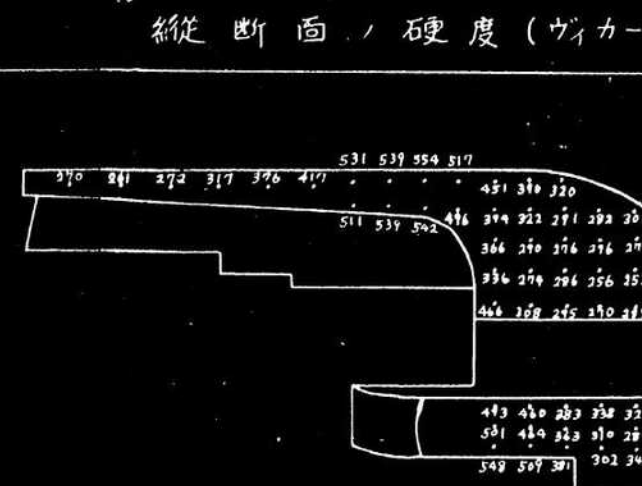 縦断面ノ硬度(ヴィカー
531 539 554 517
370 272 317 376 417
451 390 320
511 539 542 496 394 322 291 292 30
366 290 276 276 27
336 274 286 256 25
466 308 295 290
493 460 383 338 32
501 464 363 310 28
548 509 381 302 34